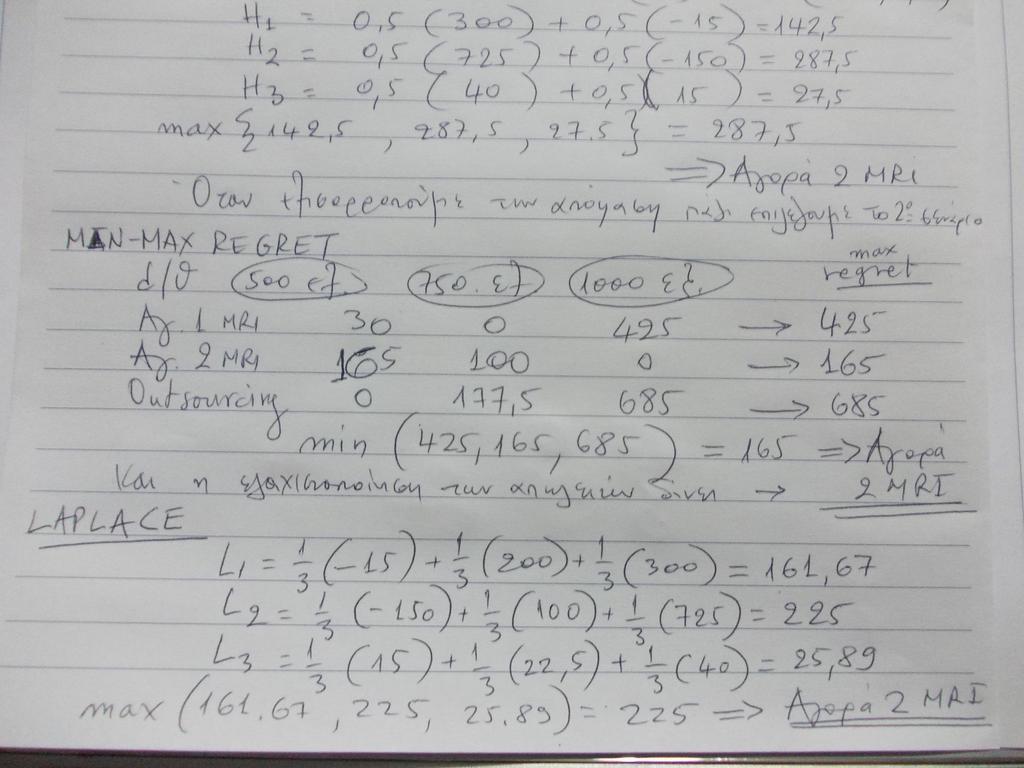 H1 = 0,5 (300) + 0,5 (-15) = 142,5
H2 = 0,5 (725) + 0,5 (-150) = 287,5
H3 = 0,5 (40) + 0,5 (15) = 27,5
max {142,5 , 287,5 , 27.5} = 287,5
⇒ Αγορά 2 MRI
Όταν ισορροπούμε την απόφαση πάλι επιλέγουμε το 2ο σενάριο
MIN-MAX REGRET
d/θ 500 εξ. 750. εξ 1000 εξ. max regret
Αγ. 1 MRI 30 0 425 → 425
Αγ. 2 MRI 165 100 0 → 165
Outsourcing 0 177,5 685 → 685
min (425, 165, 685) = 165 ⇒ Αγορά
Και η ελαχιστοποίηση των απωλειών δίνει → 2 MRI
LAPLACE
L1 = 1/3 (-15) + 1/3 (200) + 1/3 (300) = 161,67
L2 = 1/3 (-150) + 1/3 (100) + 1/3 (725) = 225
L3 = 1/3 (15) + 1/3 (22,5) + 1/3 (40) = 25,89
max (161.67 , 225, 25.89) = 225 ⇒ Αγορά 2 MRI